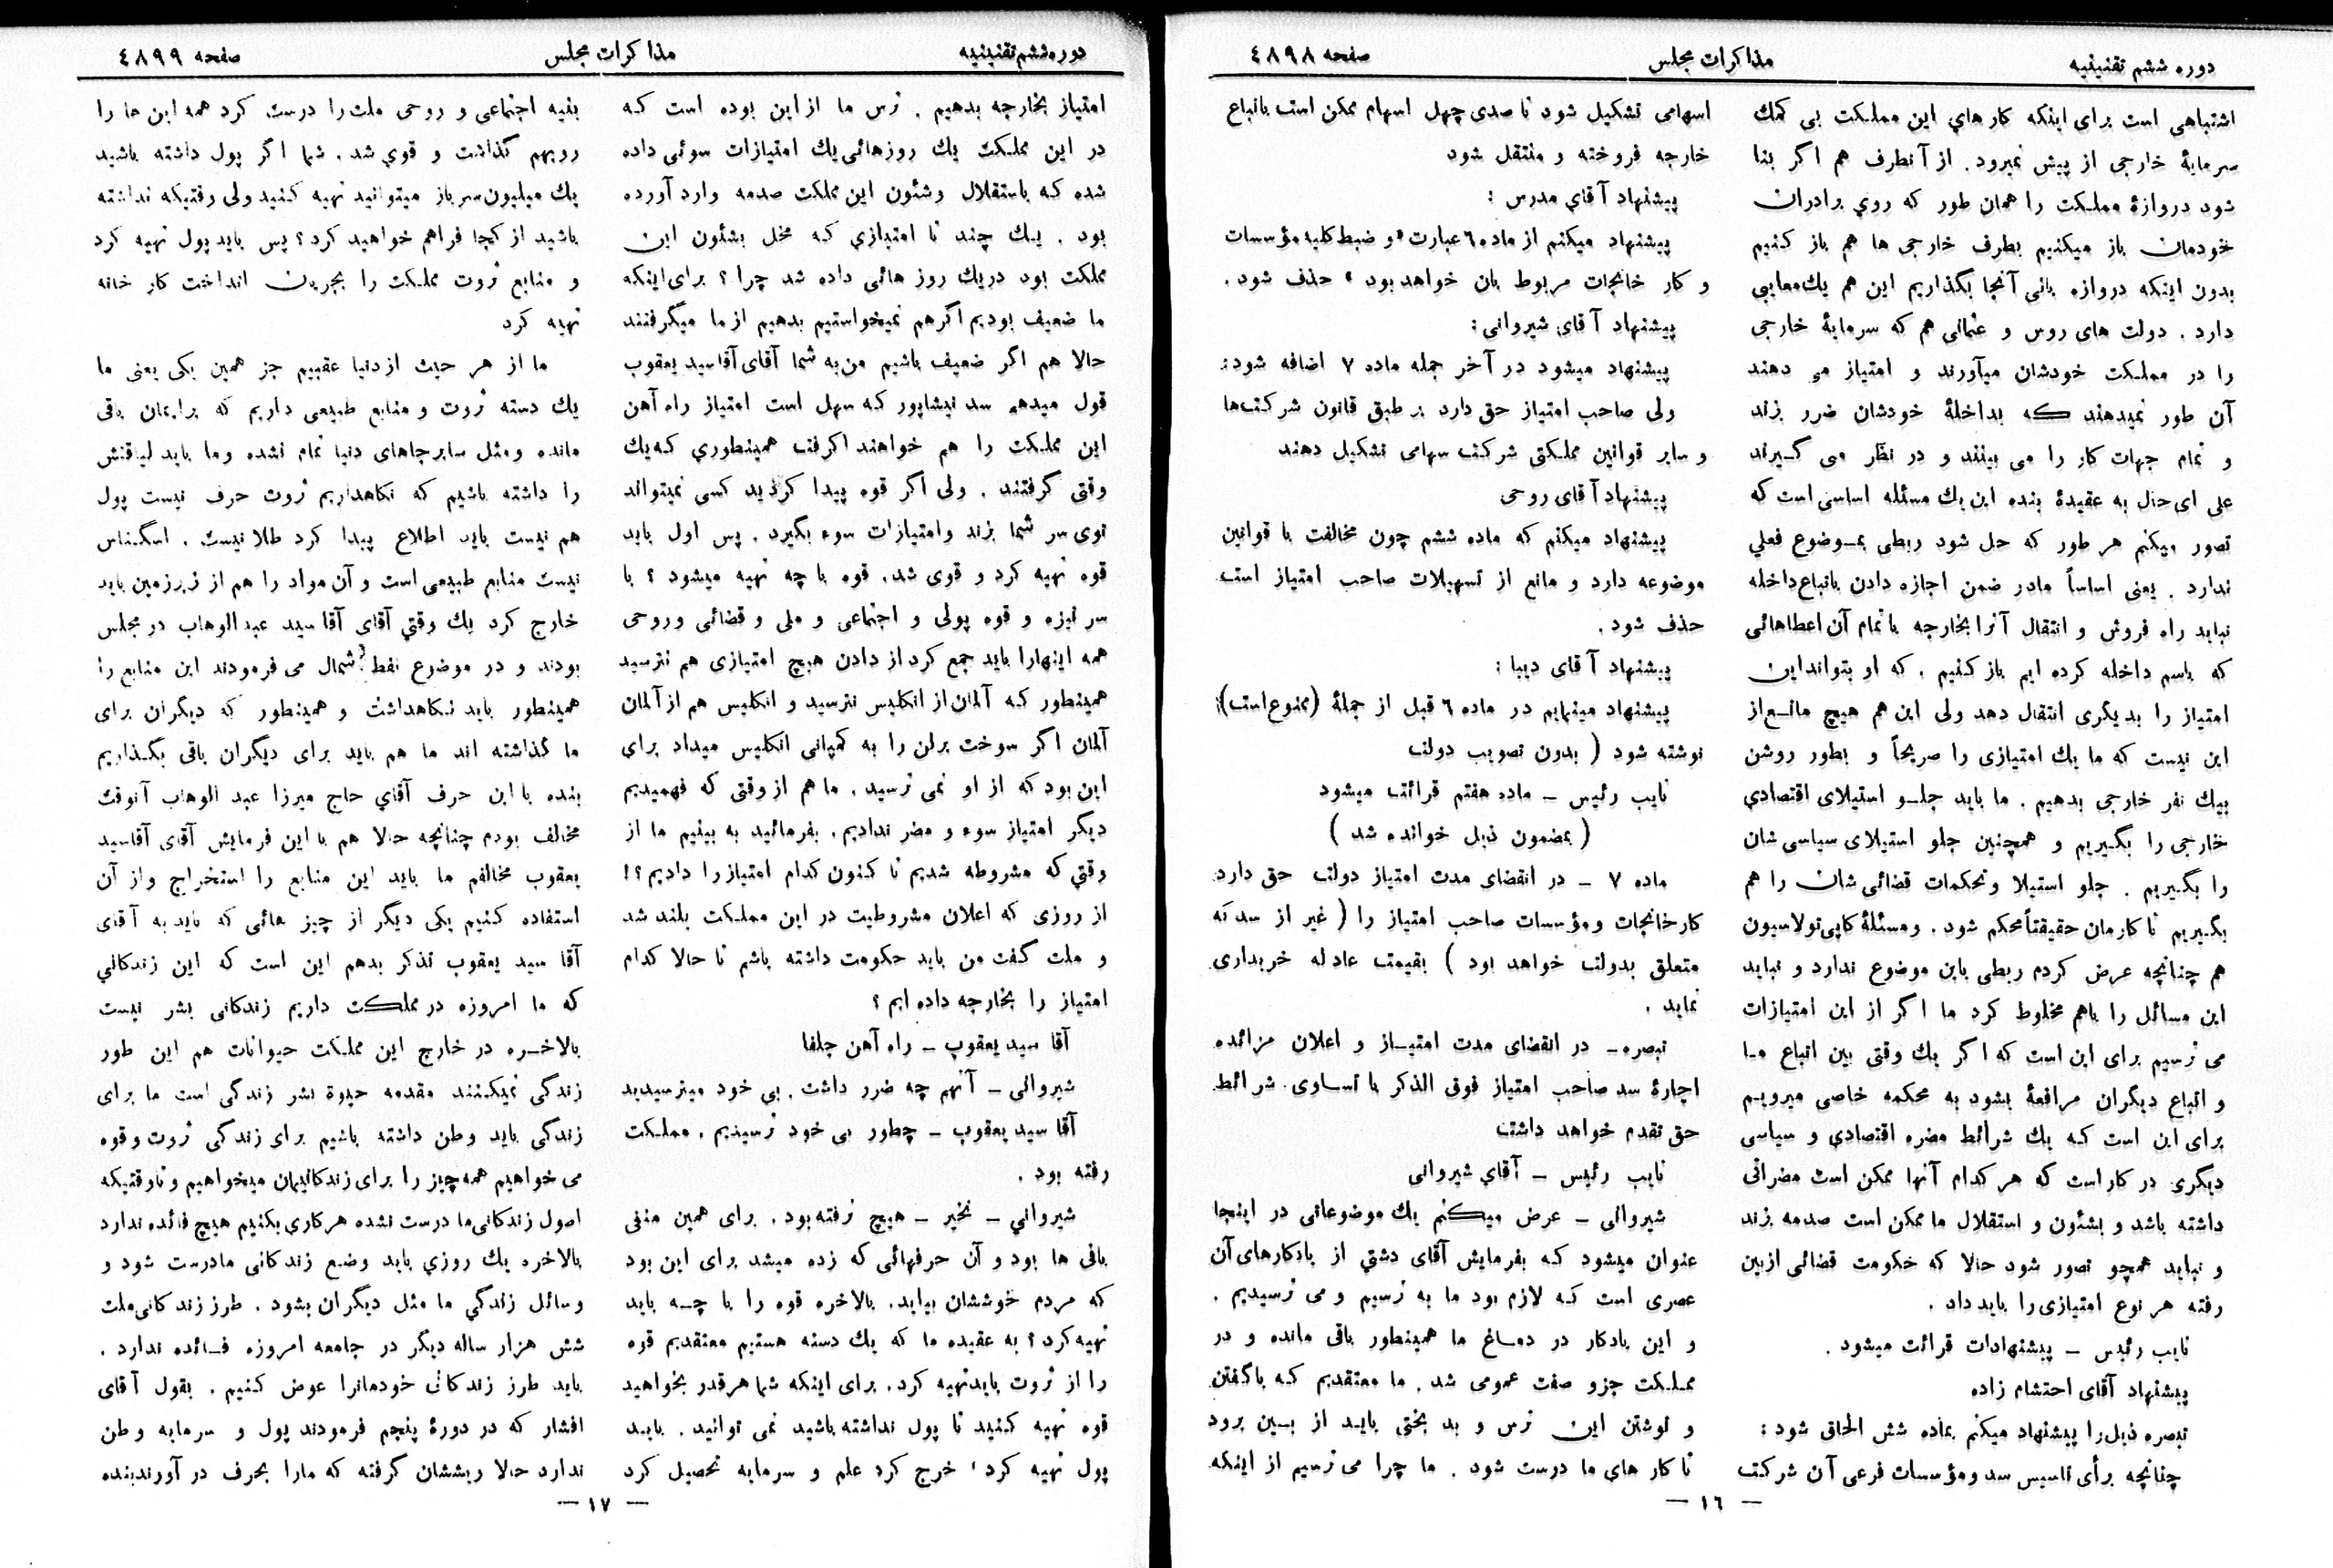 دوره ششم تقنینیه
مذاکرات مجلس
صفحه ٤٨٩٨
اشتباهی است برای اینکه کار هاي این مملکت بی کمك
سرمایهٔ خارجی از پیش نمیرود. از آنطرف هم اگر بنا
شود دروازهٔ مملکت را همان طور که روي برادران
خودمان باز میکنیم بطرف خارجی ها هم باز کنیم
بدون اینکه دروازه بانی آنجا بگذاریم این هم یك معایبی
دارد . دولت های روس و عثمانی هم که سرمایهٔ خارجی
را در مملکت خودشان میآورند و امتیاز می دهند
آن طور نمیدهند که بداخلهٔ خودشان ضرر بزند
و تمام جهات کار را می بینند و در نظر می گیرند
علی ای حال به عقیدهٔ بنده این یك مسئله اساسی است که
تصور میکنم هر طور که حل شود ربطی بموضوع فعلي
ندارد . یعنی اساساً مادر ضمن اجازه دادن باتباع داخله
نباید راه فروش و انتقال آنرا بخارجه با تمام آن اعطاهائی
که باسم داخله کرده ایم باز کنیم . که او بتواند این
امتیاز را بدیگری انتقال دهد ولی این هم هیچ مانع از
این نیست که ما یك امتیازی را صریحاً و بطور روشن
بیك نفر خارجی بدهیم . ما باید جلو استیلای اقتصادي
خارجی را بگیریم و همچنین جلو استیلای سیاسی شان
را بگیریم . جلو استیلا و تحکمات قضائی شان را هم
بگیریم تا کارمان حقیقتاً محکم شود . و مسئلهٔ کاپی تولاسیون
هم چنانچه عرض کردم ربطی باین موضوع ندارد و نباید
این مسائل را باهم مخلوط کرد ما اگر از این امتیازات
می ترسیم برای این است که اگر یك وقتی بین اتباع ما
و اتباع دیگران مرافعهٔ بشود به محکمه خاصی میرویم
برای این است که یك شرائط مضره اقتصادي و سیاسی
دیگری در کار است که هر کدام آنها ممکن است مضراتی
داشته باشد و بشئون و استقلال ما ممکن است صدمه بزند
و نباید همچو تصور شود حالا که حکومت قضائی از بین
رفته هر نوع امتیازی را باید داد .
نایب رئیس ــ پیشنهادات قرائت میشود .
پیشنهاد آقای احتشام زاده
تبصره ذیل را پیشنهاد میکنم بماده شش الحاق شود :
چنانچه برأی تاسیس سد و مؤسسات فرعی آن شرکت
اسهامی تشکیل شود تا صدی چهل اسهام ممکن است باتباع
خارجه فروخته و منتقل شود
پیشنهاد آقاي مدرس :
پیشنهاد میکنم از ماده ٦ عبارت « و ضبط کلیه مؤسسات
و کار خانجات مربوط بان خواهد بود » حذف شود .
پیشنهاد آقای شیروانی :
پیشنهاد میشود در آخر جمله ماده ٧ اضافه شود:
ولی صاحب امتیاز حق دارد بر طبق قانون شرکت‌ها
و سایر قوانین مملکتی شرکت سهامی تشکیل دهند
پیشنهاد آقای روحی
پیشنهاد میکنم که ماده ششم چون مخالفت با قوانین
موضوعه دارد و مانع از تسهیلات صاحب امتیاز است
حذف شود .
پیشنهاد آقای دیبا :
پیشنهاد مینمایم در ماده ٦ قبل از جملهٔ (ممنوع است):
نوشته شود ( بدون تصویب دولت
نایب رئیس ــ ماده هفتم قرائت میشود
( بمضمون ذیل خوانده شد )
ماده ٧ ــ در انقضای مدت امتیاز دولت حق دارد
کارخانجات و مؤسسات صاحب امتیاز را ( غیر از سد که
متعلق بدولت خواهد بود ) بقیمت عادله خریداری
نماید .
تبصره ــ در انقضای مدت امتیاز و اعلان مزائده
اجارهٔ سد صاحب امتیاز فوق الذکر با تساوی شرائط
حق تقدم خواهد داشت
نایب رئیس ــ آقاي شیروانی
شیروانی ــ عرض میکنم یك موضوعاتی در اینجا
عنوان میشود که بفرمایش آقای دشتي از یادکارهای آن
عصری است که لازم بود ما به ترسیم و می ترسیدیم .
و این یادکار در دماغ ما همینطور باقی مانده و در
مملکت جزو صفت عمومی شد . ما معتقدیم که باگفتن
و نوشتن این ترس و بد بختی باید از بین برود
تا کار های ما درست شود . ما چرا می ترسیم از اینکه
— ١٦ —
دوره ششم تقنینیه
مذاکرات مجلس
صفحه ٤٨٩٩
امتیاز بخارجه بدهیم . ترس ما از این بوده است که
در این مملکت یك روزهائی یك امتیازات سوئی داده
شده که باستقلال وشئون این مملکت صدمه وارد آورده
بود . یك چند تا امتیازي که مخل بشئون این
مملکت بود در یك روز هائی داده شد چرا ؟ برای اینکه
ما ضعیف بودیم اگر هم نمیخواستیم بدهیم از ما میگرفتند
حالا هم اگر ضعیف باشیم من به شما آقای آقا سید یعقوب
قول میدهم سد نیشاپور که سهل است امتیاز راه آهن
این مملکت را هم خواهند اکرفت همینطوري که یك
وقتی گرفتند . ولی اگر قوه پیدا کردید کسی نمیتواند
توی سر شما بزند و امتیازات سوء بگیرد . پس اول باید
قوه تهیه کرد و قوی شد. قوه با چه تهیه میشود ؟ با
سر نیزه و قوه پولی و اجتماعی و ملی و قضائی و روحی
همه اینهارا باید جمع کرد از دادن هیچ امتیازی هم نترسید
همینطور که آلمان از انکلیس نترسید و انکلیس هم از آلمان
آلمان اگر سوخت برلن را به کمپانی انکلیس میداد برای
این بود که از او نمی ترسید . ما هم از وقتی که فهمیدیم
دیگر امتیاز سوء و مضر ندادیم. بفرمائید به بینیم ما از
وقتي که مشروطه شدیم تا کنون کدام امتیاز را دادیم ؟!
از روزی که اعلان مشروطیت در این مملکت بلند شد
و ملت گفت من باید حکومت داشته باشم تا حالا کدام
امتیاز را بخارجه داده ایم ؟
آقا سید یعقوب ــ راه آهن جلفا
شیروانی ــ آنهم چه ضرر داشت . بی خود میترسیدید
آقا سید یعقوب ــ چطور بی خود ترسیدیم . مملکت
رفته بود .
شیرواني ــ نخیر ــ هیچ نرفته بود . برای همین منفی
بافی ها بود و آن حرفهائی که زده میشد برای این بود
که مردم خوششان بیاید. بالاخره قوه را با چه باید
تهیه کرد ؟ به عقیده ما که یك دسته هستیم معتقدیم قوه
را از ثروت باید تهیه کرد. برای اینکه شما هر قدر بخواهید
قوه تهیه کنید تا پول نداشته باشید نمی توانید . باید
پول تهیه کرد ، خرج کرد علم و سرمایه تحصیل کرد
بنیه اجتماعی و روحی ملت را درست کرد همه این ها را
رویهم گذاشت و قوي شد. شما اگر پول داشته باشید
یك میلیون سرباز میتوانید تهیه کنید ولی وقتیکه نداشته
باشید از کجا فراهم خواهید کرد ؟ پس باید پول تهیه کرد
و منابع ثروت مملکت را بجریان انداخت کار خانه
تهیه کرد
ما از هر حیث از دنیا عقبیم جز همین یکی یعنی ما
یك دسته ثروت و منابع طبیعی داریم که برایمان باقی
مانده و مثل سایر جاهای دنیا تمام نشده و ما باید لیاقتش
را داشته باشیم که نکاهداریم ثروت حرف نیست پول
هم نیست باید اطلاع پیدا کرد طلا نیست . اسکناس
نیست منابع طبیعی است و آن مواد را هم از زیرزمین باید
خارج کرد یك وقتي آقای آقا سید عبدالوهاب در مجلس
بودند و در موضوع نفط شمال می فرمودند این منابع را
همینطور باید نکاهداشت و همینطور که دیگران برای
ما گذاشته اند ما هم باید برای دیگران باقی بگذاریم
بنده با این حرف آقاي حاج میرزا عبد الوهاب آنوقت
مخالف بودم چنانچه حالا هم با این فرمایش آقای آقاسید
یعقوب مخالفم ما باید این منابع را استخراج و از آن
استفاده کنیم یکی دیگر از چیز هائی که باید به آقای
آقا سید یعقوب تذکر بدهم این است که این زندکاني
که ما امروزه در مملکت داریم زندکانی بشر نیست
بالاخره در خارج این مملکت حیوانات هم این طور
زندگی نمیکنند مقدمه حیوة بشر زندگی است ما برای
زندگی باید وطن داشته باشیم برای زندگی ثروت و قوه
می خواهیم همه چیز را برای زندکانیمان میخواهیم و تا وقتیکه
اصول زندکانی ما درست نشده هر کاري بکنیم هیچ فائده ندارد
بالاخره یك روزي باید وضع زندکانی مادرست شود و
وسائل زندگي ما مثل دیگران بشود . طرز زندکانی ملت
شش هزار ساله دیگر در جامعه امروزه فائده ندارد .
باید طرز زندکانی خودمانرا عوض کنیم . بقول آقای
افشار که در دورهٔ پنجم فرمودند پول و سرمایه وطن
ندارد حالا ریششان گرفته که مارا بحرف در آورند بنده
— ١٧ —